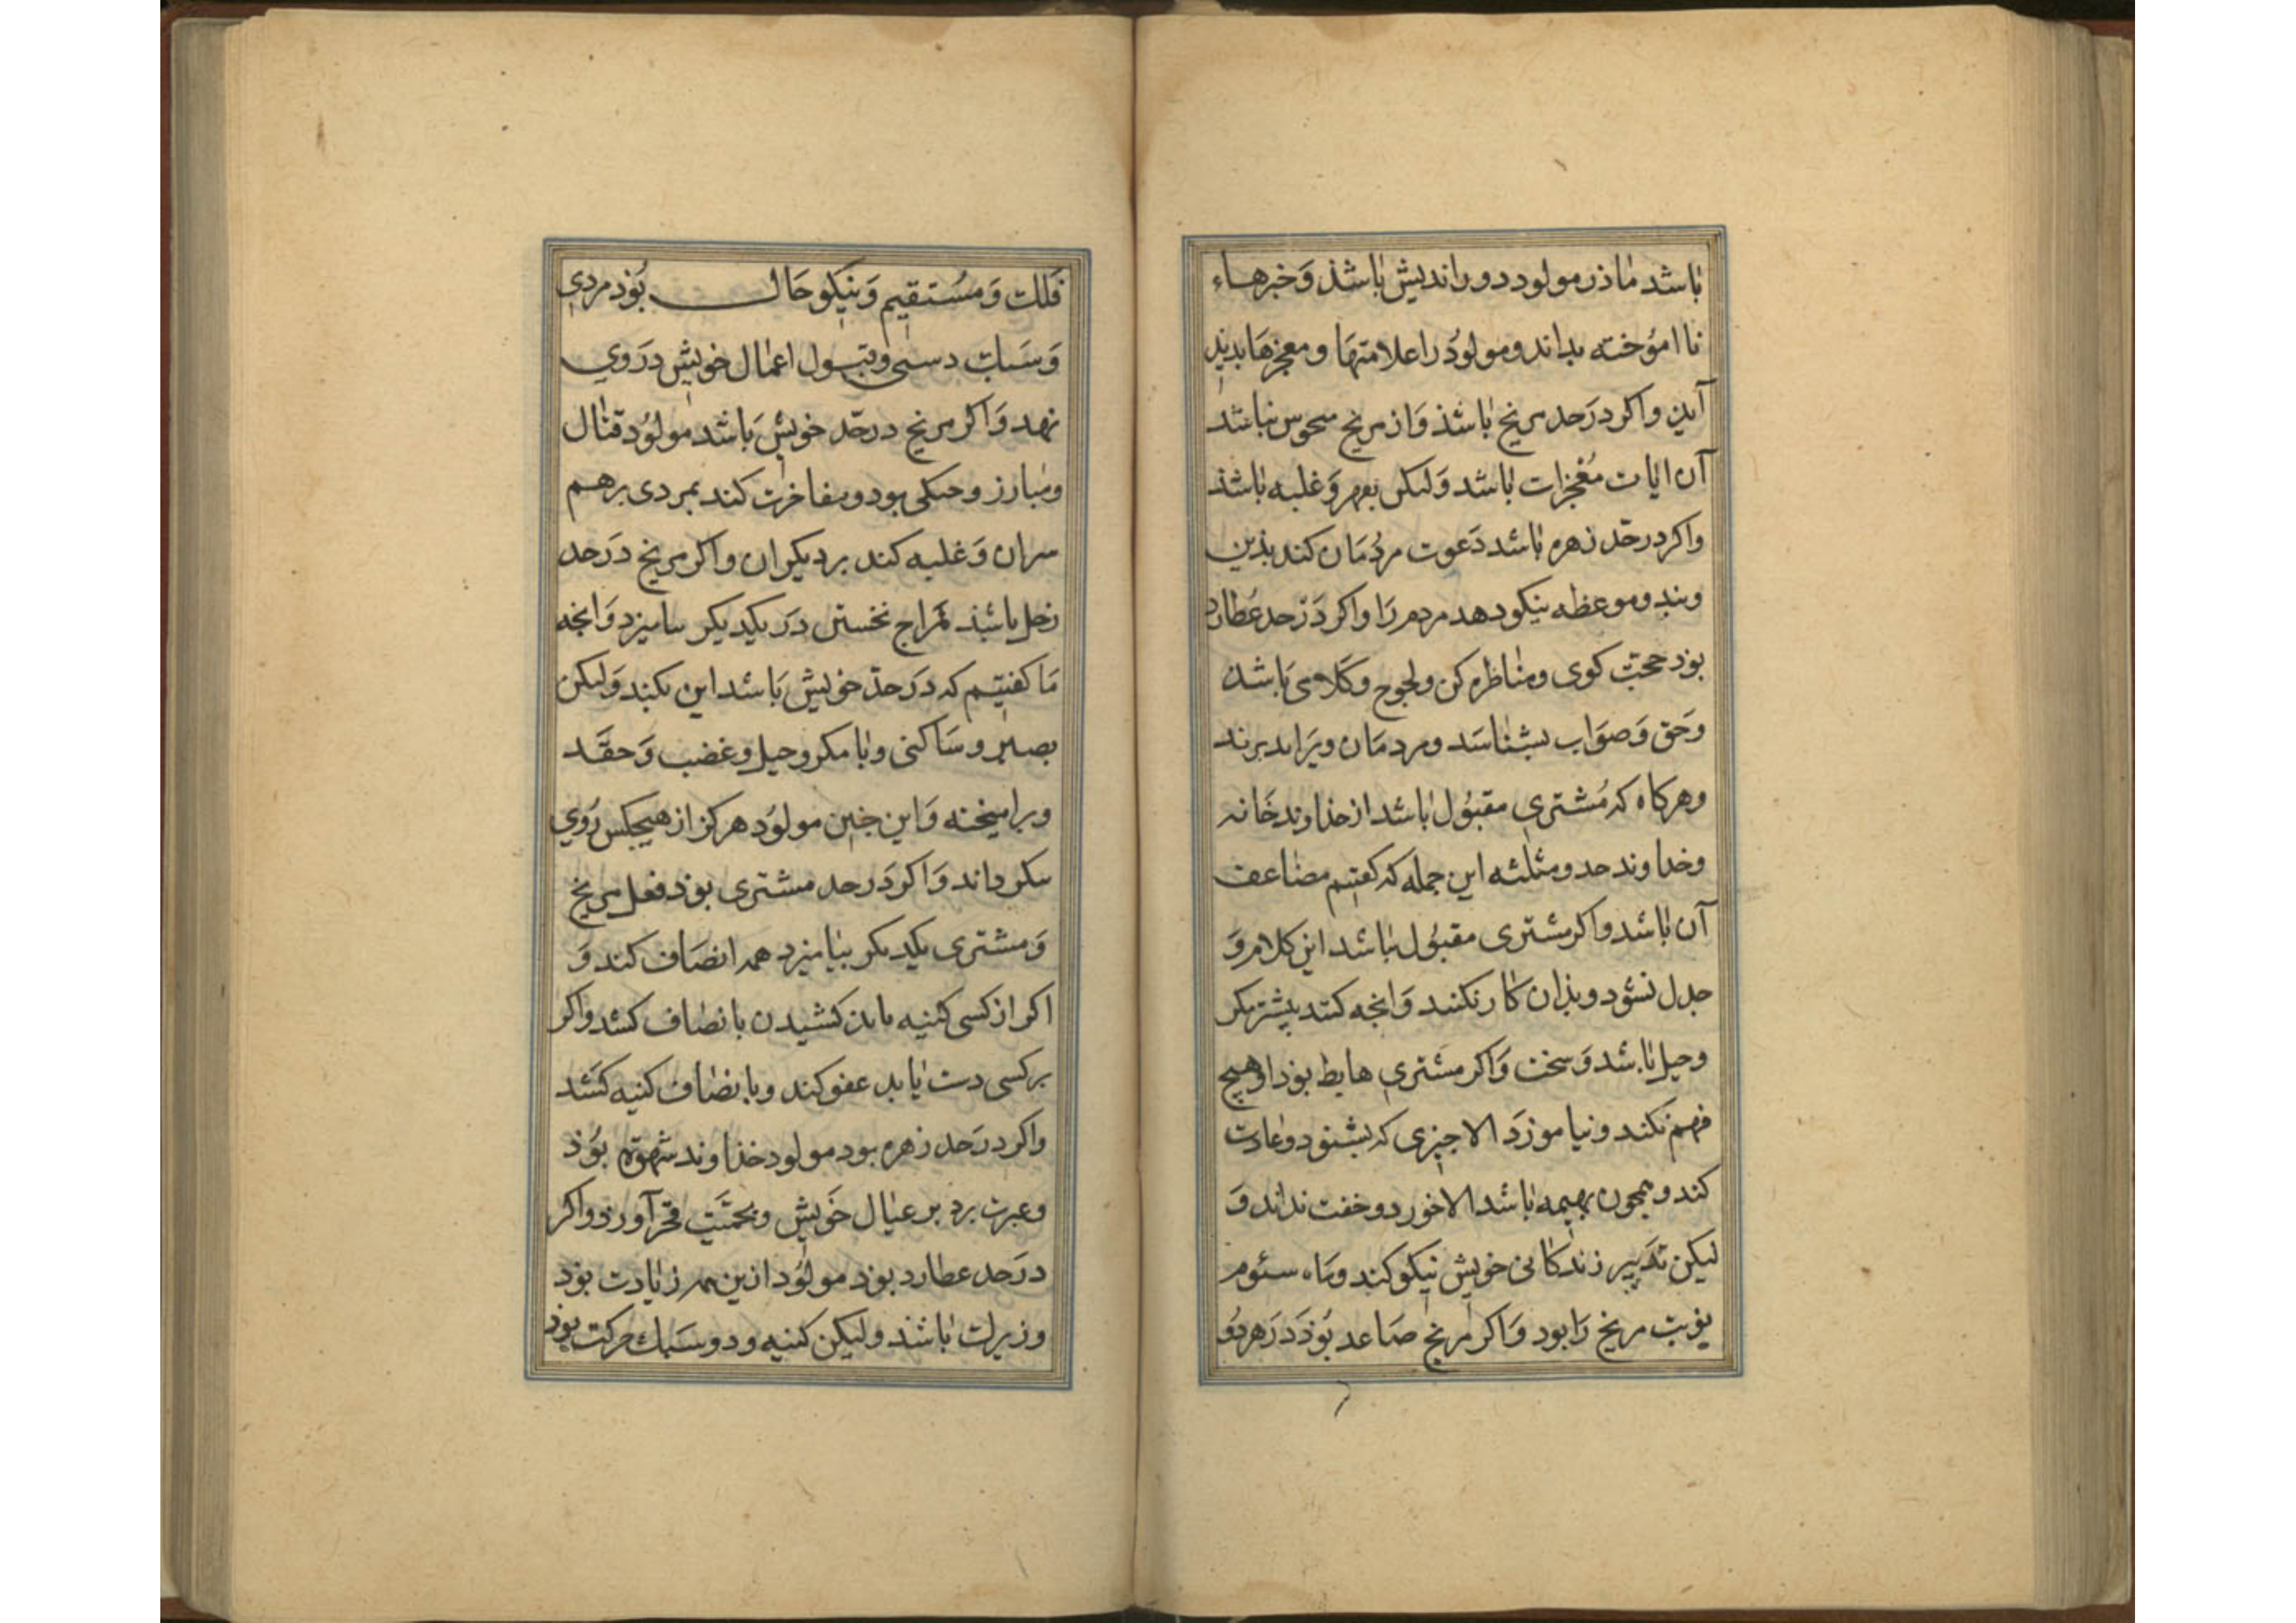 باشد ماذر مولود دور اندیش باشذ وَ خبرهاء
نا اموُخته بداند و مولوُد را علامتهَا و معجزهَا بدید
آید واکر درَحد مریخ باشذ وَ از مریخ منحوس نباشد
آن ایات مُعْجزات باشد وَ لیکن بقهر وَ غلبه باشذ
واکر درحّد زهره باشد دَعوت مردُمَان کند بذین
وبند و موعظه نیکو دهد مردم رَا واکر دَرْحد عُطارد
بوذ حجّت کوی و مناظره کن و لجوج و کَلامی بَاشذ
وَحَق وَ صوَاب بشناسَد و مردمَان ویرَا بدبرند
وهرکاه که مُشتری مقبُول باشد از خذاوند خَانه
وخداوند حد و مثلثه این جمله که کفتیم مضاعف
آن باشد واکر مشتری مقبوُل نباشد این کلام وَ
جدل نشوُد و بذان کار نکنند وَانجه کنند بیشتر بکر
وحیل باشد وَ سخت وَاکر مشتری هابط بوذ او هیچ
فهم نکند و نیاموزَد الا جیزی که بشنود و عادت
کند و همجون بهیمه باشد الا خورد و خفت نداند وَ
لیکن تدَبیر زندکانی خویش نیکو کند و مَاه سئوم
بنوبت مریخ رَا بود وَاکر مریخ صَاعد بوُذ دَرَ هر دوُ
فَلک وَ مسُتقیم وَ نیکو حَال بوُذ مردی
وَ سَات دستی و بتول اعمال خویش درَ وی
نهد وَاکر مریخ درحّد خویش بَاشد مولوُد قتال
ومبارز و جنکی بود و مفاخرت کند بمردی بر هم
سران وَ غلبه کند بر دیکران واکر مریخ درَحد
زحل باشذ مزاج نخستین درَ یکدیکر بیامیزد وَانجه
مَا کفتیم که درَحدّ خویش بَاشد این بکند وَ لیکن
بصبر و سَاکنی و با مکر و حیل و غضب وَ حقَد
ویرا میخته وَ این جنین مولوُد هرکز از هیجکس رُوی
نکرداند وَاکر دَرحد مشتری بوذ فعل مریخ
وَ مشتری بکدیکر بیامیزد همه انصَاف کند وَ
اکر از کسی کینه باید کشیدن با نصاف کشد واکر
بر کسی دست یابد عفو کند و با نصاف کینه کشَد
واکر درَحد زهره بود مولود خذاوند شهوة بوُذ
وغیرت برد بر عیال خوَیش و بحمیَّت فخر آورذ واکر
درَحد عطارد بوذ مولوُد ازین همه زیادت بوذ
وزیرک باشذ و لیکن کینه ور و سَبک حرکت بوذ